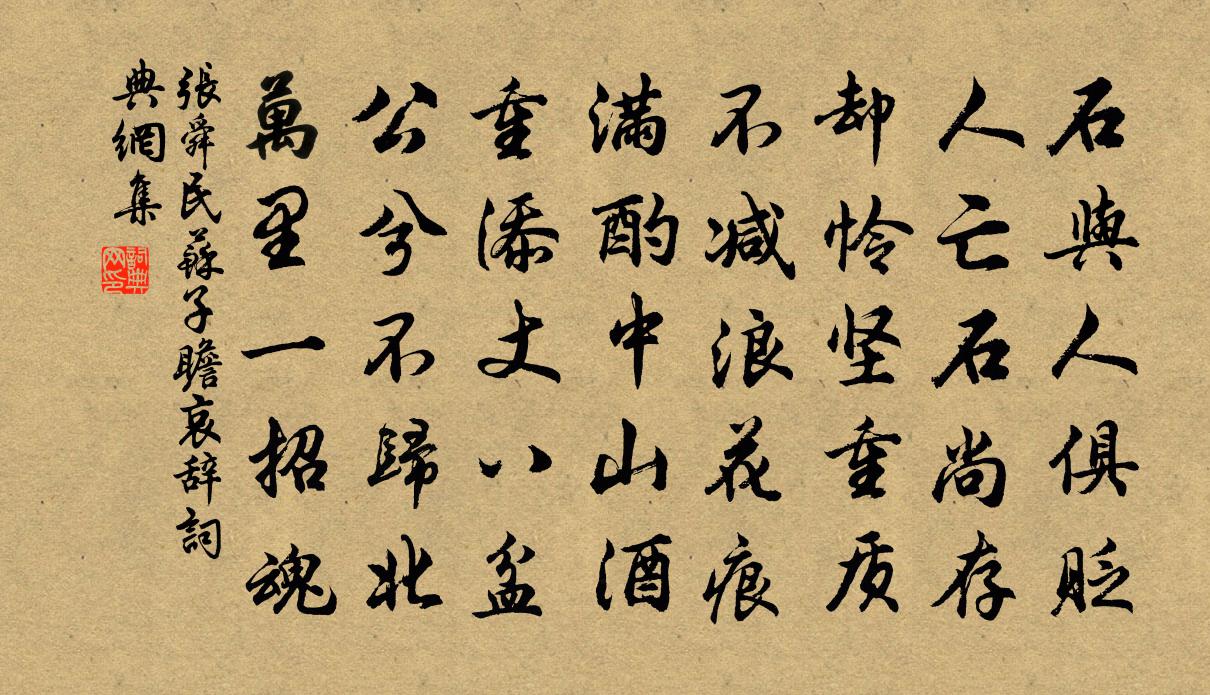 石與人俱貶
人亡石尚存
却怜坚重质
不减浪花痕
满酌中山酒
重添丈八盆
公兮不歸北
萬里一招魂
張舜民蘇子瞻哀辞詞
典網集
詞典网印